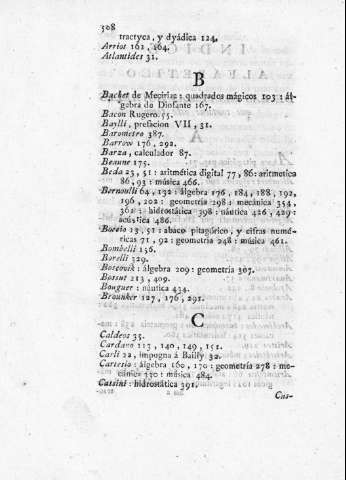 508
tractyca, y dyádica 124.
Arrios 162, 164.
Atlantides 31.
B
Bachet de Mecirias: quadrados mágicos 103: ál-
gebra de Diofante 167.
Bacon Rugero 55.
Baylli, prefacion VII, 31.
Barometro 387.
Barrow 176, 292.
Barza, calculador 87.
Beaune 175.
Beda 23, 51: aritmética digital 77, 86: aritmetica
86, 93: música 466.
Bernoulli 64, 132: álgebra 176, 184, 188, 192,
196, 202: geometría 298: mecánica 354,
361: hidrostática 398: náutica 426, 429:
acústica 486.
Boecio 13, 51: abaco pitagórico, y cifras numé-
ricas 71, 92: geometría 248: música 461.
Bombelli 156.
Borelli 329.
Boscovik: álgebra 209: geometría 307.
Bossut 213, 409.
Bouguer: náutica 434.
Brounker 127, 176, 291.
C
Caldeos 35.
Cardano 113, 140, 149, 151.
Carli 22, impugna á Bailly 32.
Cartesio: álgebra 160, 170: geometría 278: me-
cánica 330: música 484.
Casini: hidrostática 391.
Cas-